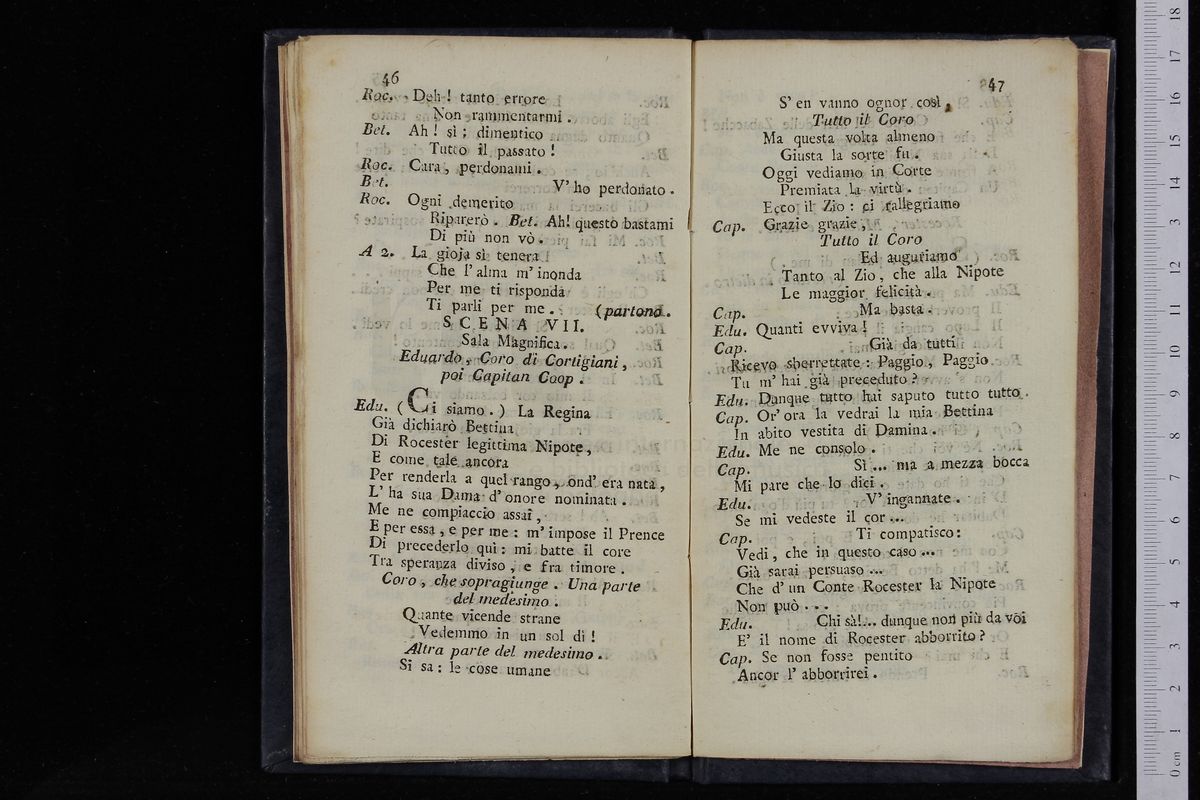 46
Roc. Deh! tanto errore
Non rammentarmi.
Bet. Ah! sì; dimentico
Tutto il passato!
Roc. Cara, perdonami.
Bet. V' ho perdonato.
Roc. Ogni demerito
Riparerò. Bet. Ah! questo bastami
Di più non vò.
A 2. La gioja sì tenera
Che l' alma m' inonda
Per me ti risponda
Ti parli per me. (partono.
SCENA VII.
Sala Magnifica.
Eduardo, Coro di Cortigiani,
poi Capitan Coop.
Edu. (Ci siamo.) La Regina
Già dichiarò Bettina
Di Rocester legittima Nipote,
E come tale ancora
Per renderla a quel rango, ond' era nata,
L' ha sua Dama d' onore nominata.
Me ne compiaccio assai,
E per essa, e per me: m' impose il Prence
Di precederlo qui: mi batte il core
Tra speranza diviso, e fra timore.
Coro, che sopragiunge. Una parte
del medesimo.
Quante vicende strane
Vedemmo in un sol dì!
Altra parte del medesimo.
Si sa: le cose umane
47
S' en vanno ognor così,
Tutto il Coro
Ma questa volta almeno
Giusta la sorte fu.
Oggi vediamo in Corte
Premiata la virtù.
Ecco il Zio: ci rallegriamo
Cap. Grazie grazie,
Tutto il Coro
Ed auguriamo
Tanto al Zio, che alla Nipote
Le maggior felicità.
Cap. Ma basta.
Edu. Quanti evviva!
Cap. Già da tutti
Ricevo sberrettate: Paggio, Paggio
Tu m' hai già preceduto?
Edu. Dunque tutto hai saputo tutto tutto.
Cap. Or' ora la vedrai la mia Bettina
In abito vestita di Damina.
Edu. Me ne consolo.
Cap. Sì... ma a mezza bocca
Mi pare che lo dici.
Edu. V' ingannate.
Se mi vedeste il cor...
Cap. Ti compatisco:
Vedi, che in questo caso...
Già sarai persuaso...
Che d' un Conte Rocester la Nipote
Non può...
Edu. Chi sà!... dunque non più da voi
E' il nome di Rocester abborrito?
Cap. Se non fosse pentito
Ancor l' abborrirei.
0 cm 1 2 3 4 5 6 7 8 9 10 11 12 13 14 15 16 17 18